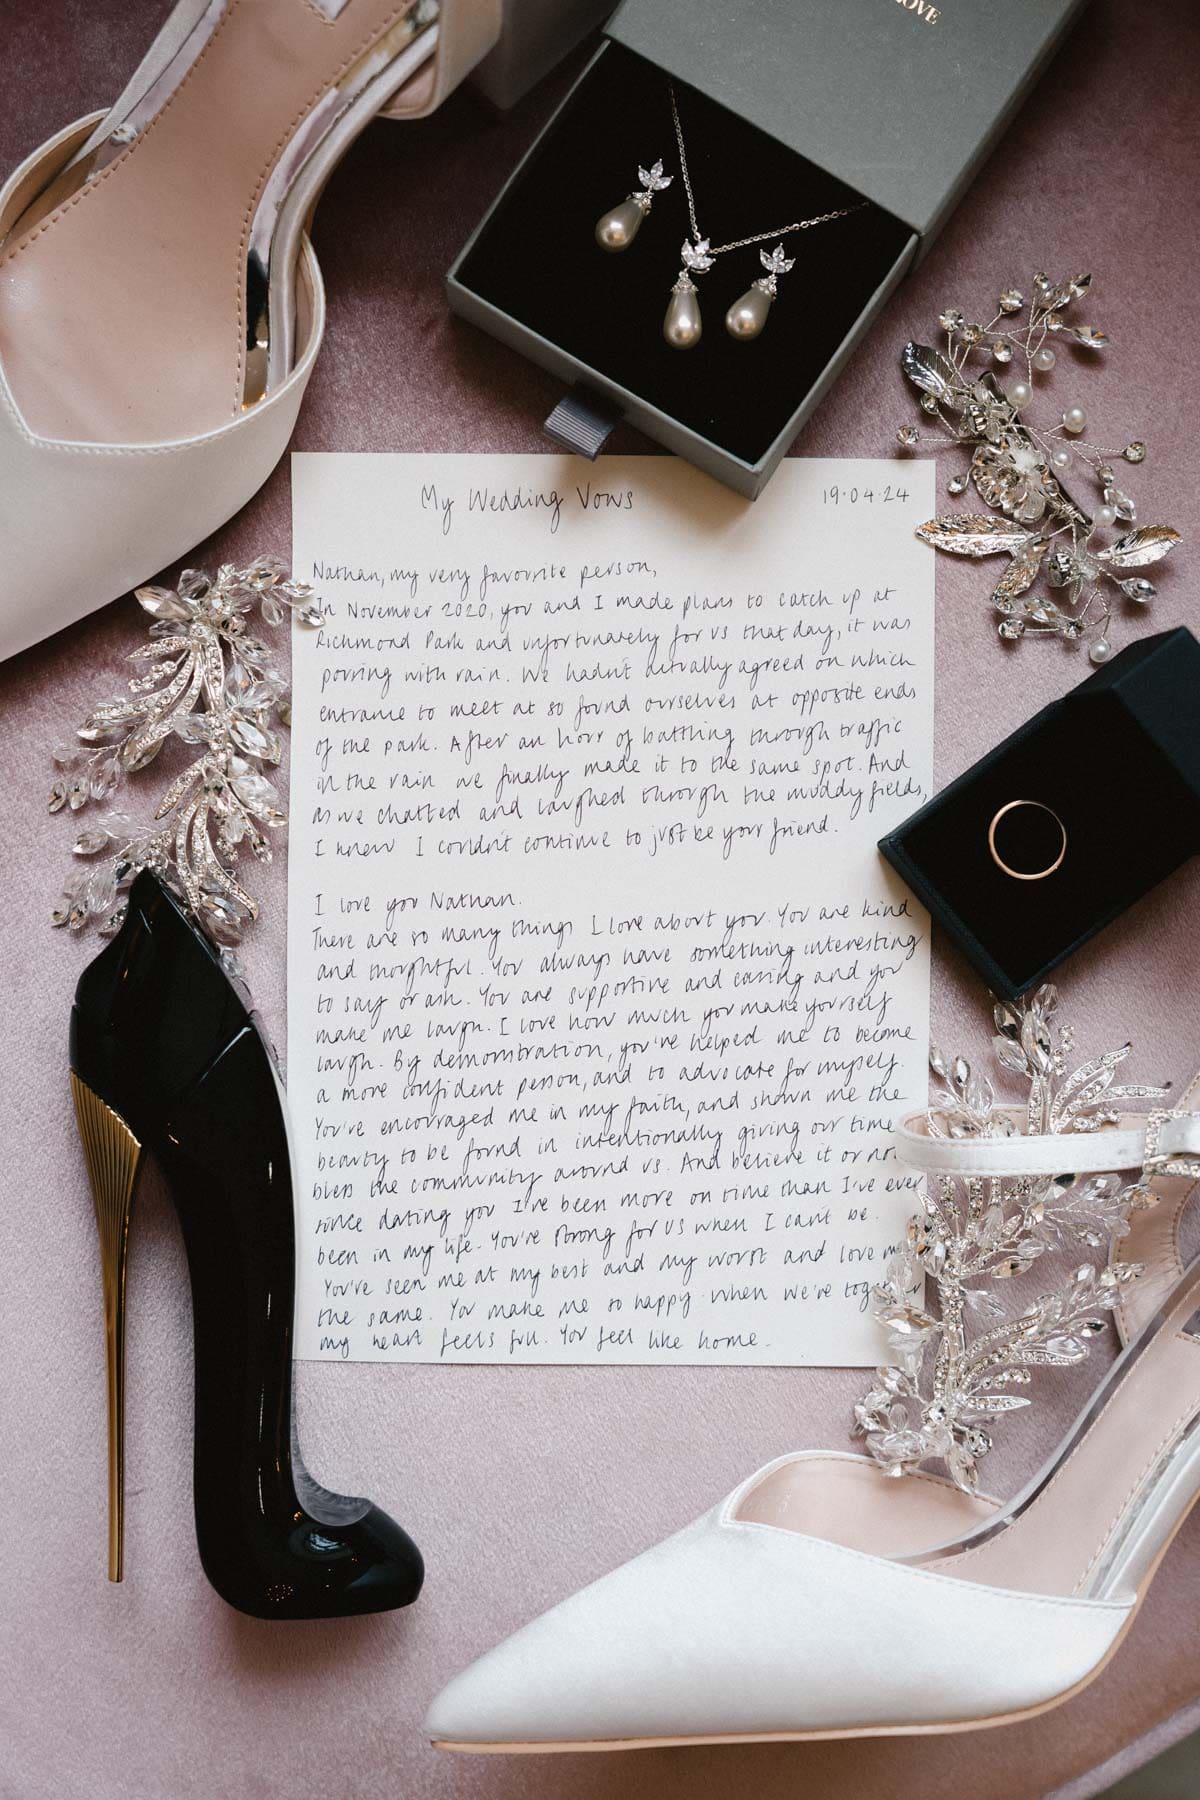 OVE
My Wedding Vows 19.04.24
Nathan, my very favourite person,
In November 2020, you and I made plans to catch up at
Richmond Park and unfortunately for us that day, it was
pouring with rain. We hadn't actually agreed on which
entrance to meet at so found ourselves at opposite ends
of the park. After an hour of battling through traffic
in the rain we finally made it to the same spot. And
as we chatted and laughed through the muddy fields,
I knew I couldn't continue to just be your friend.
I love you Nathan.
There are so many things I love about you. You are kind
and thoughtful. You always have something interesting
to say or ask. You are supportive and caring and you
make me laugh. I love how much you make yourself
laugh. By demonstration, you've helped me to become
a more confident person, and to advocate for myself.
You've encouraged me in my faith, and shown me the
beauty to be found in intentionally giving our time
bless the community around us. And believe it or no
since dating you I've been more on time than I've ever
been in my life. You're strong for us when I can't be.
You've seen me at my best and my worst and love m
the same. You make me so happy. When we're together
my heart feels full. You feel like home.